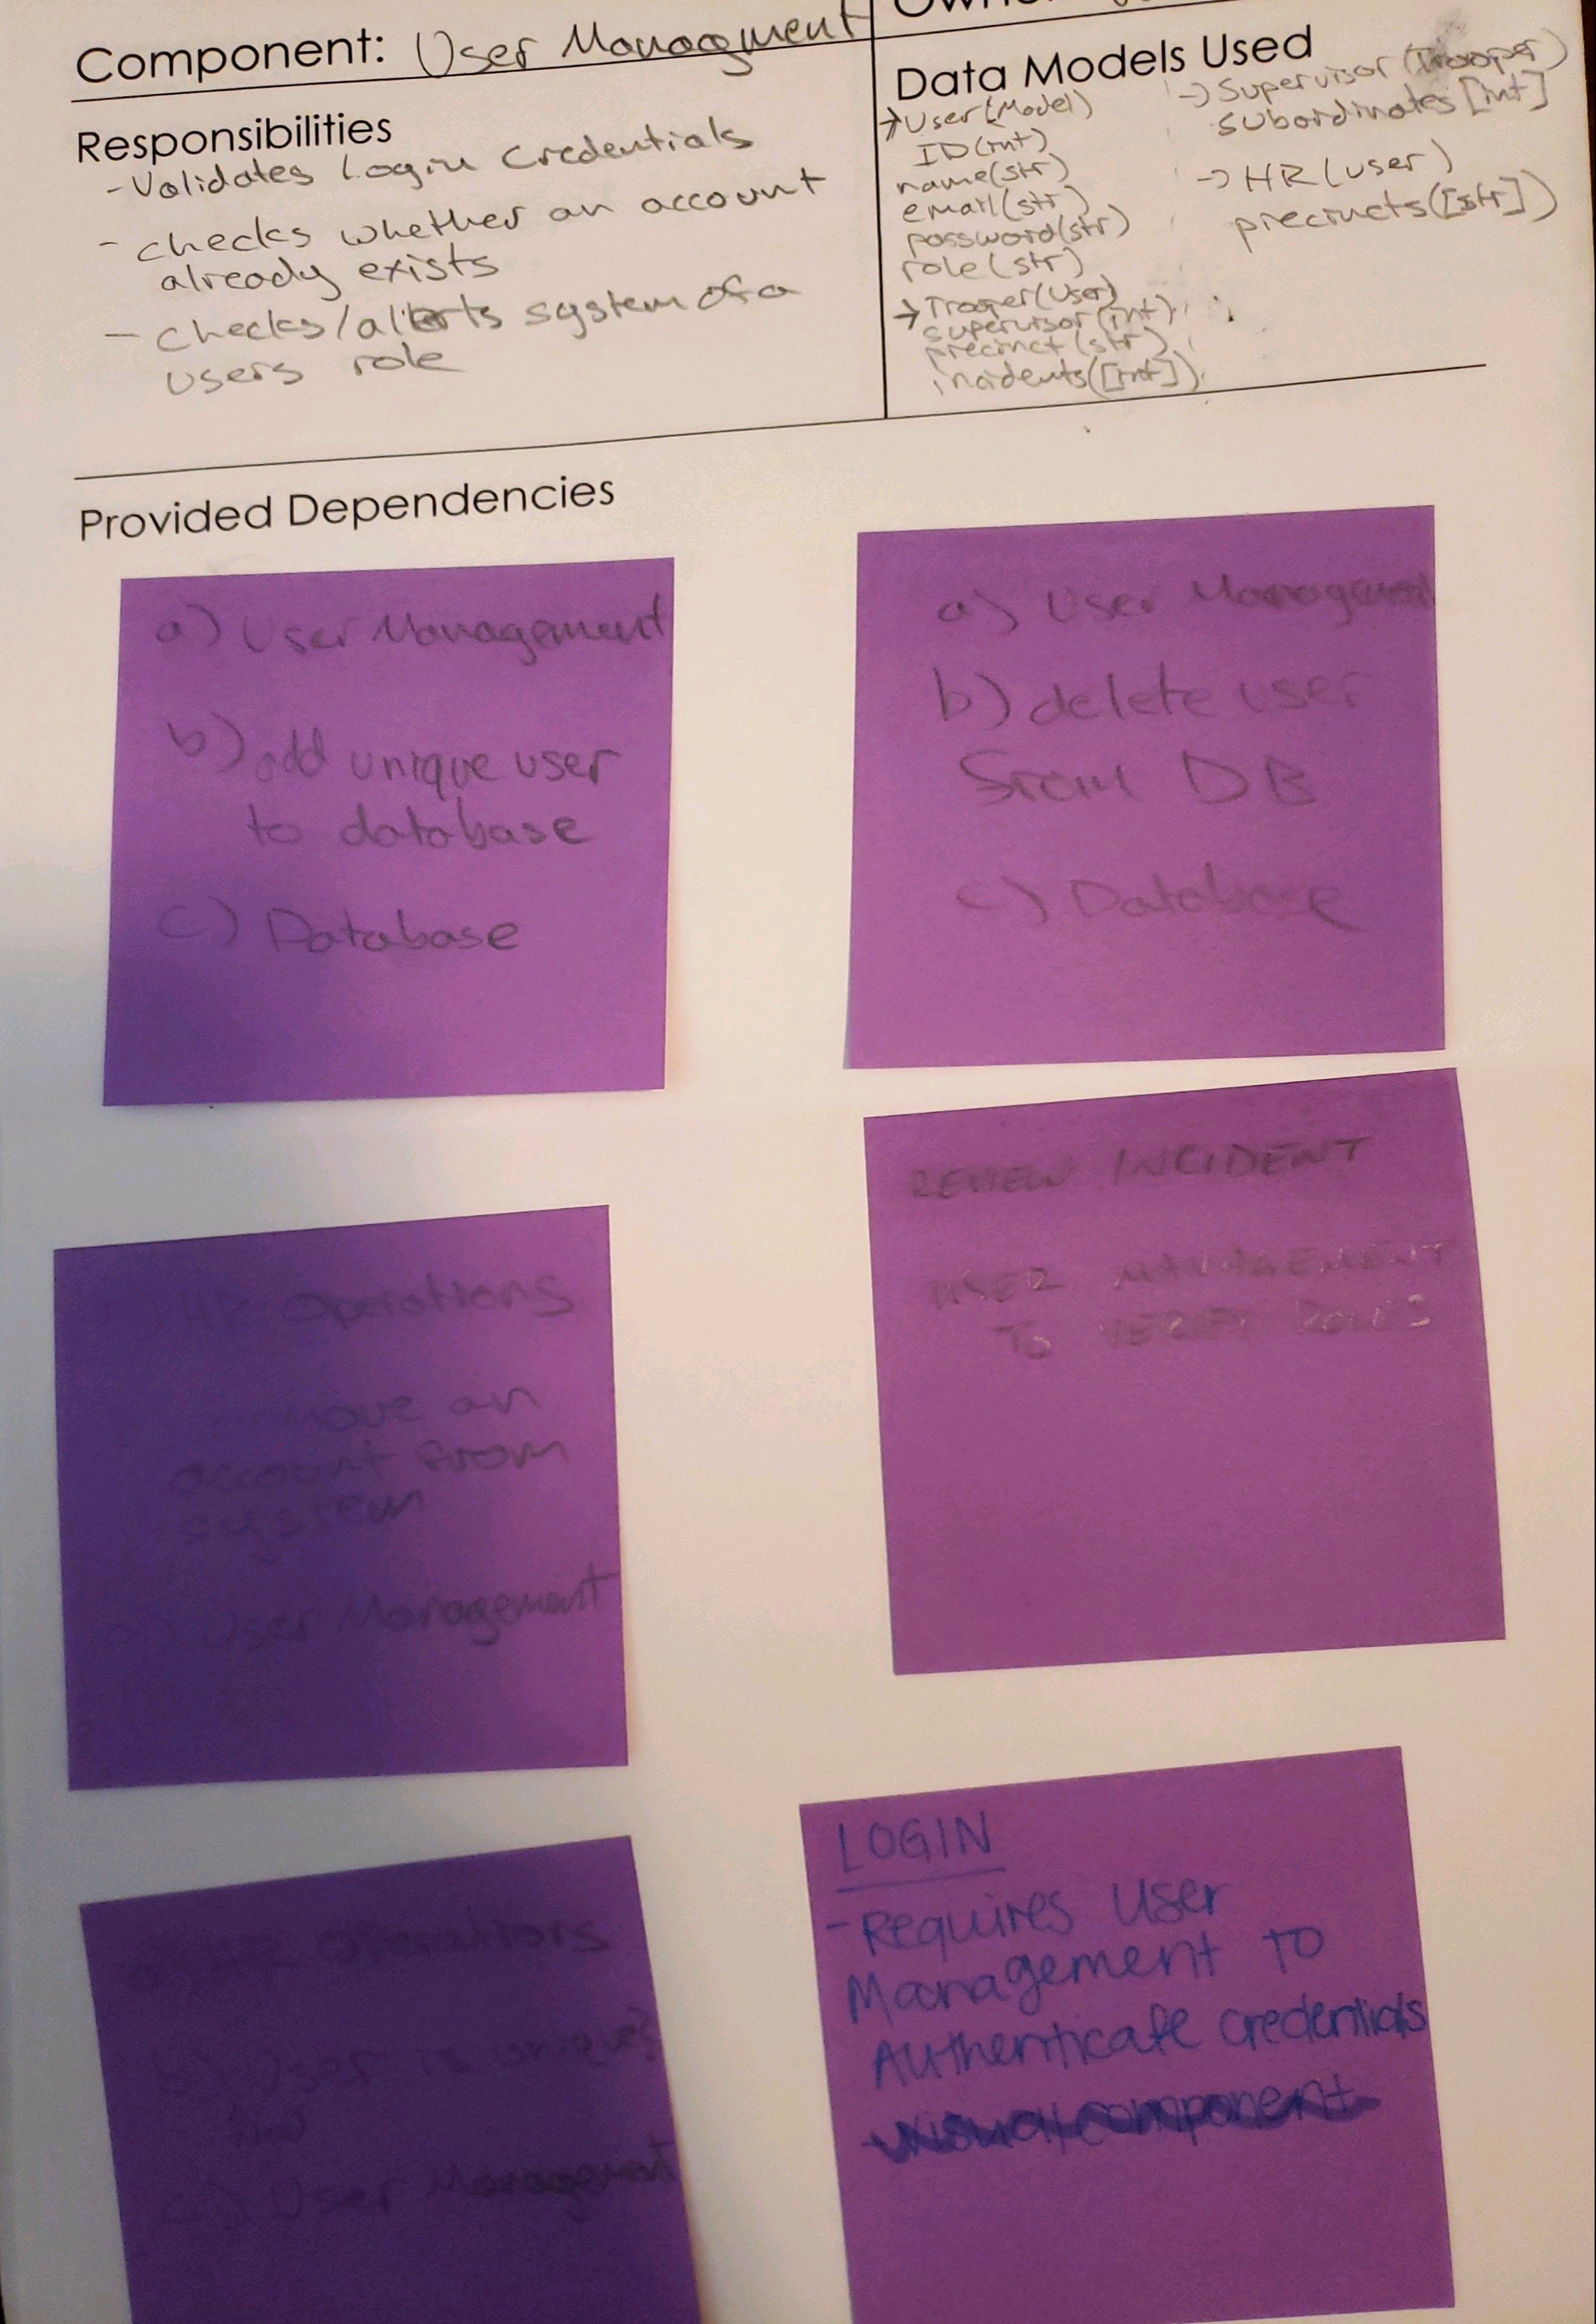 Component: User Managment
Responsibilities
-Validates Login Credentials
- checks whether an account
already exists
- checks/alerts system of a
users role
Data Models Used
→User(Model)
ID(int)
name(str)
email(str)
password(str)
role(str)
→Trooper(User)
supervisor(int)
precinct(str)
incidents([int])
→Supervisor(Trooper)
subordinates[int]
→HR(user)
precincts([str])
Provided Dependencies
a) User Management
b) add unique user
to database
c) Database
a) User Management
b) delete user
from DB
c) Database
HR Operations
remove an
account from
system
User Management
REVIEW INCIDENT
USER MANAGEMENT
TO VERIFY ROLES
a) HR Operations
b) User is unique?
c) User Management
LOGIN
-Requires User
Management to
Authenticate credentials